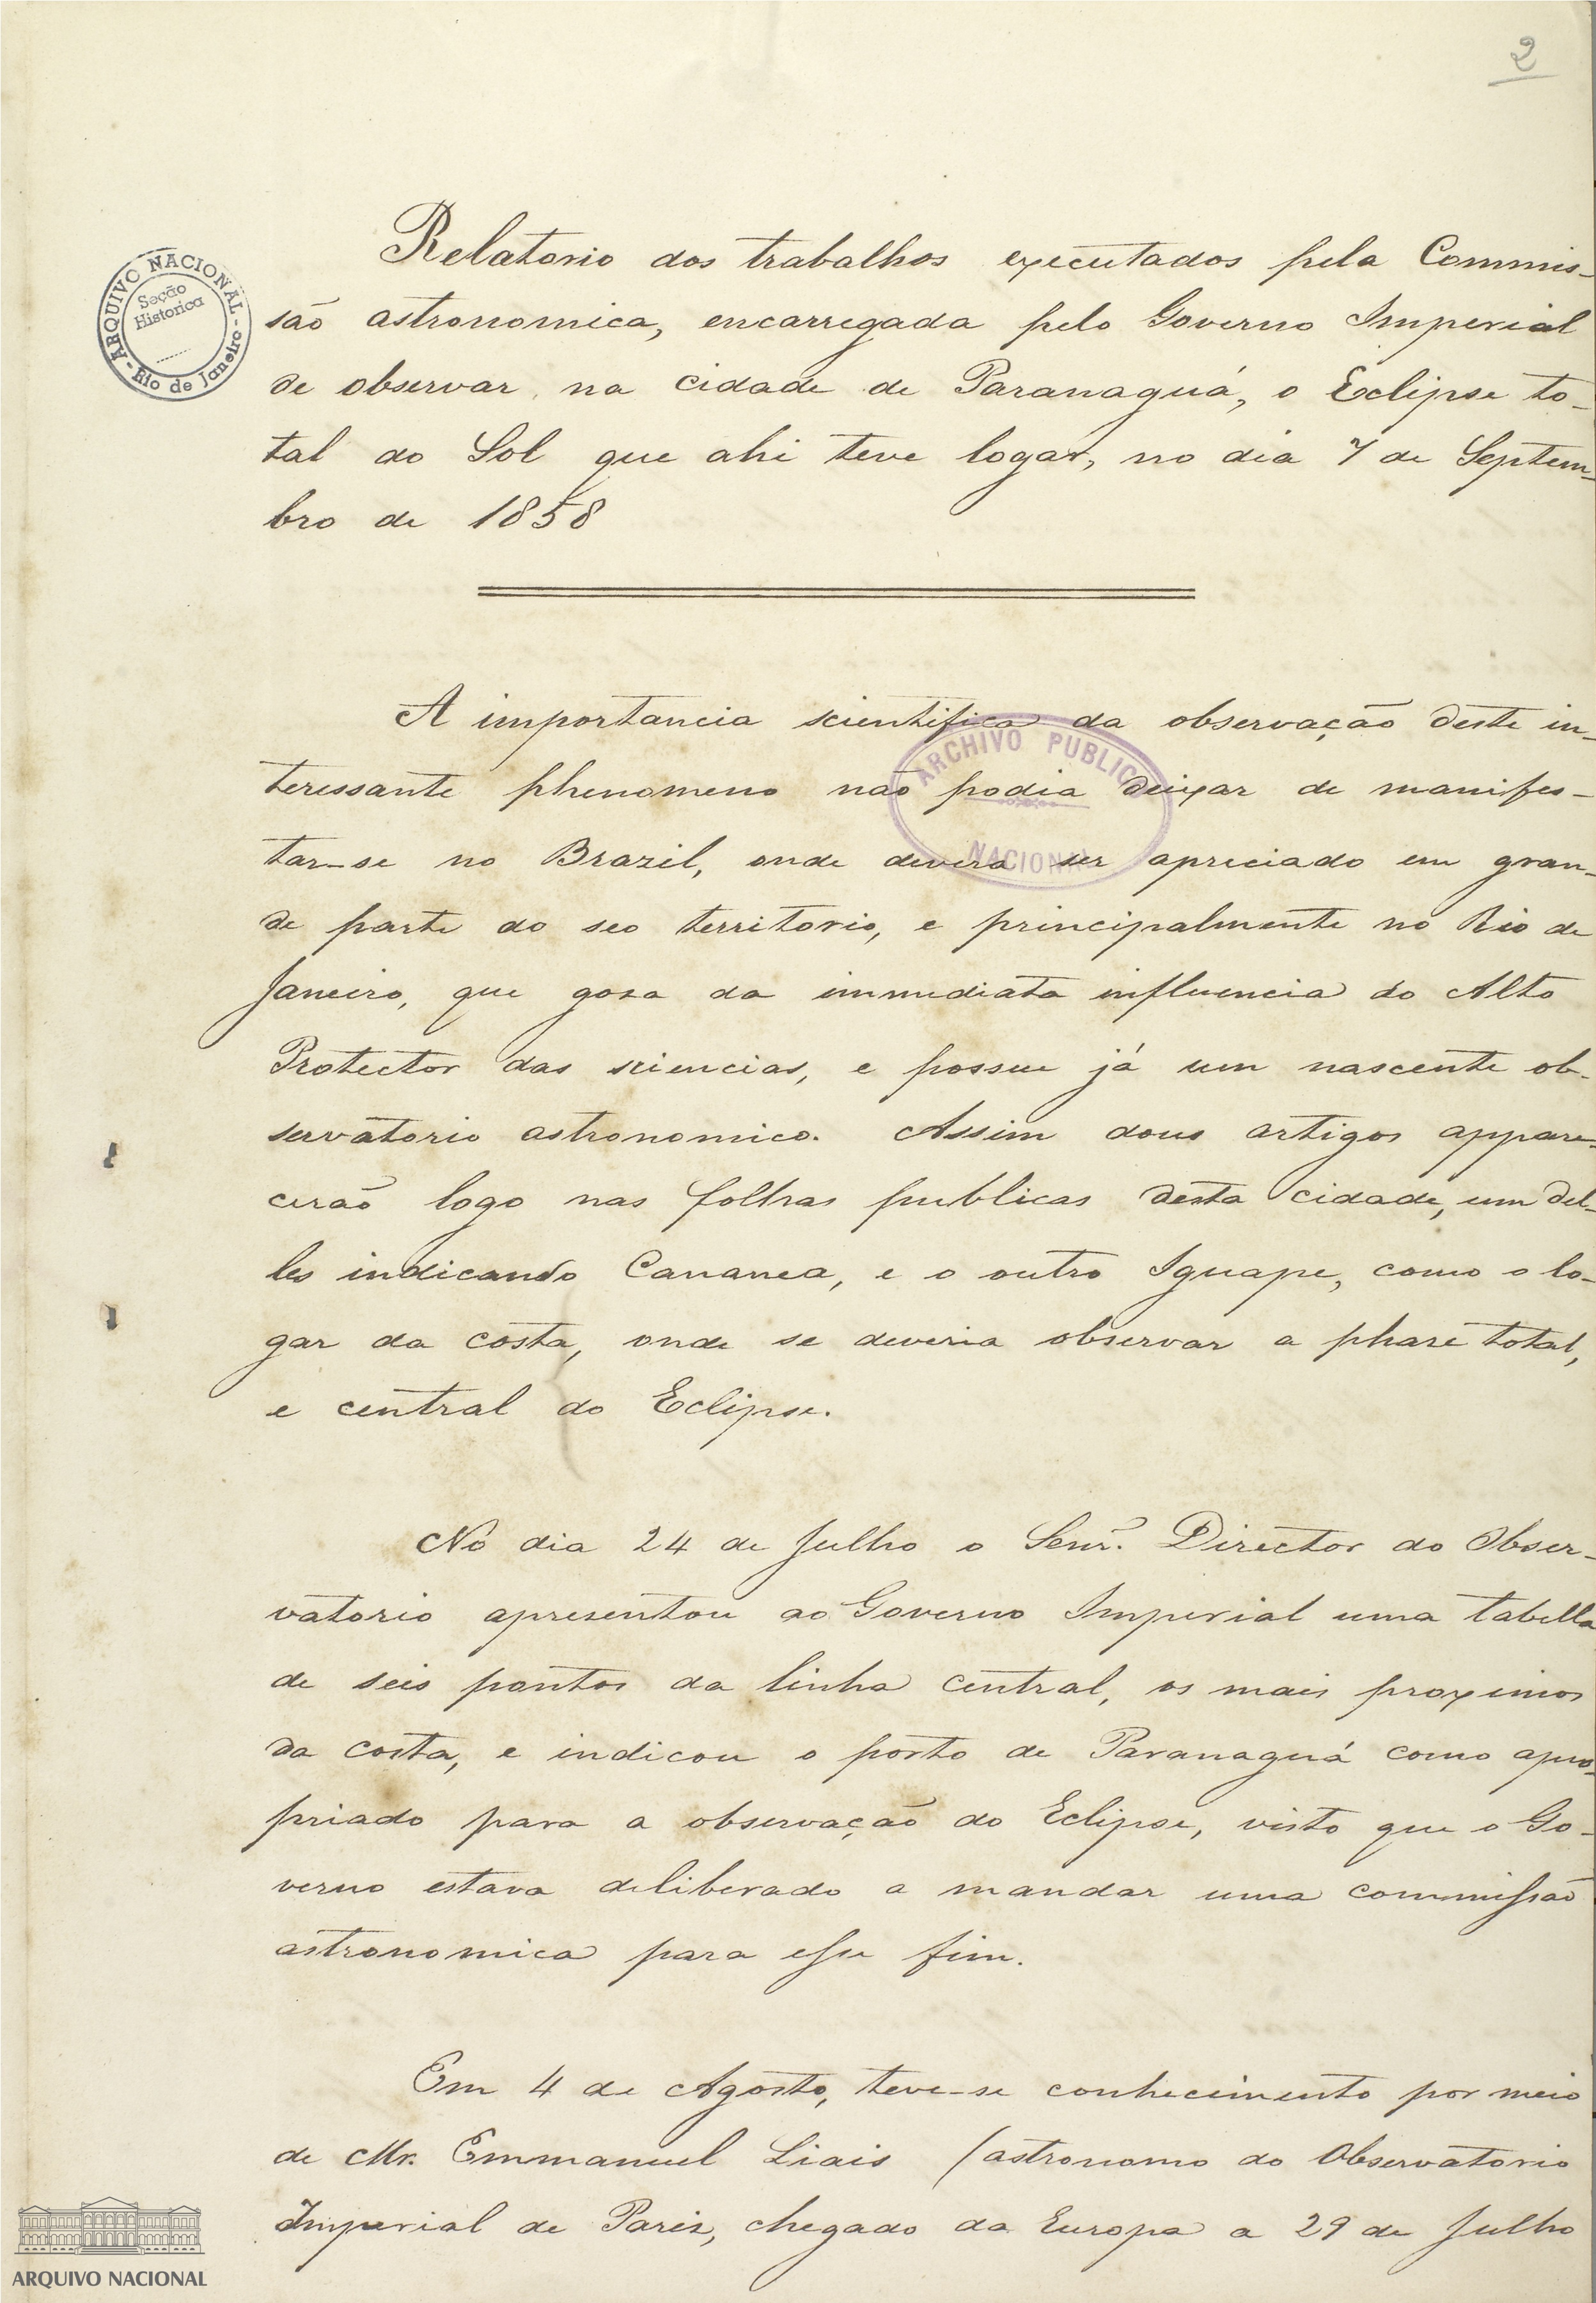 2
Relatorio dos trabalhos executados pela Commis-
são astronomica, encarregada pelo Governo Imperial
de observar, na cidade de Paranaguá, o Eclipse to-
tal do Sol que ahi teve logar, no dia 7 de Septem-
bro de 1858
ARQUIVO NACIONAL - Rio de Janeiro -
Seção
Historica
A importancia scientifica da observação deste in-
teressante phenomeno não podia deixar de manifes-
tar-se no Brazil, onde devera ser apreciado em gran-
de parte do seo territorio, e principalmente no Rio de
Janeiro, que gosa da immediata influencia do Alto
Protector das sciencias, e possue já um nascente ob-
servatorio astronomico. Assim dous artigos appare-
cerão logo nas folhas publicas desta cidade, um del-
les indicando Cananea, e o outro Iguape, como o lo-
gar da costa, onde se deveria observar a phase total,
e central do Eclipse.
ARCHIVO PUBLICO
NACIONAL
No dia 24 de Julho o Senr. Director do Obser-
vatorio apresentou ao Governo Imperial uma tabella
de seis pontos da linha central, os mais proximos
da costa, e indicou o porto de Paranaguá como apro-
priado para a observação do Eclipse, visto que o Go-
verno estava deliberado a mandar uma commissão
astronomica para esse fim.
Em 4 de Agosto, teve-se conhecimento por meio
de Mr. Emmanuel Liais (astronomo do Observatorio
Imperial de Paris, chegado da Europa a 29 de Julho
ARQUIVO NACIONAL